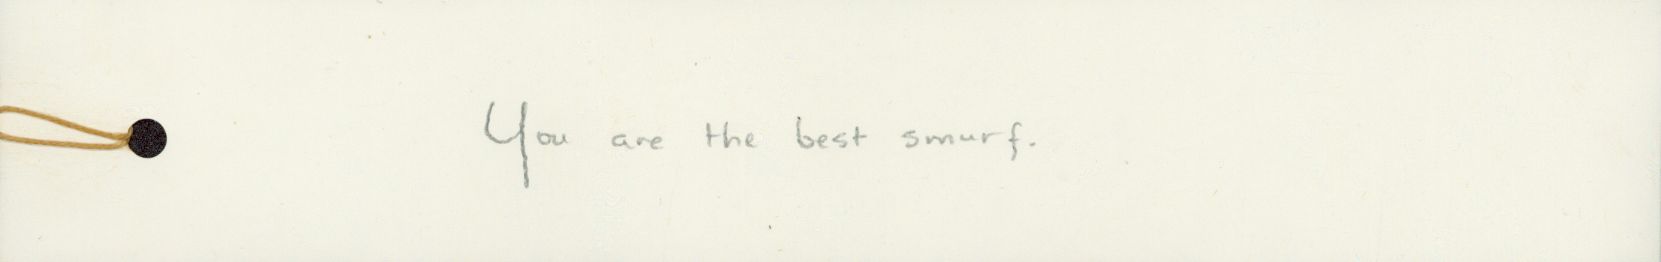 You are the best smurf.